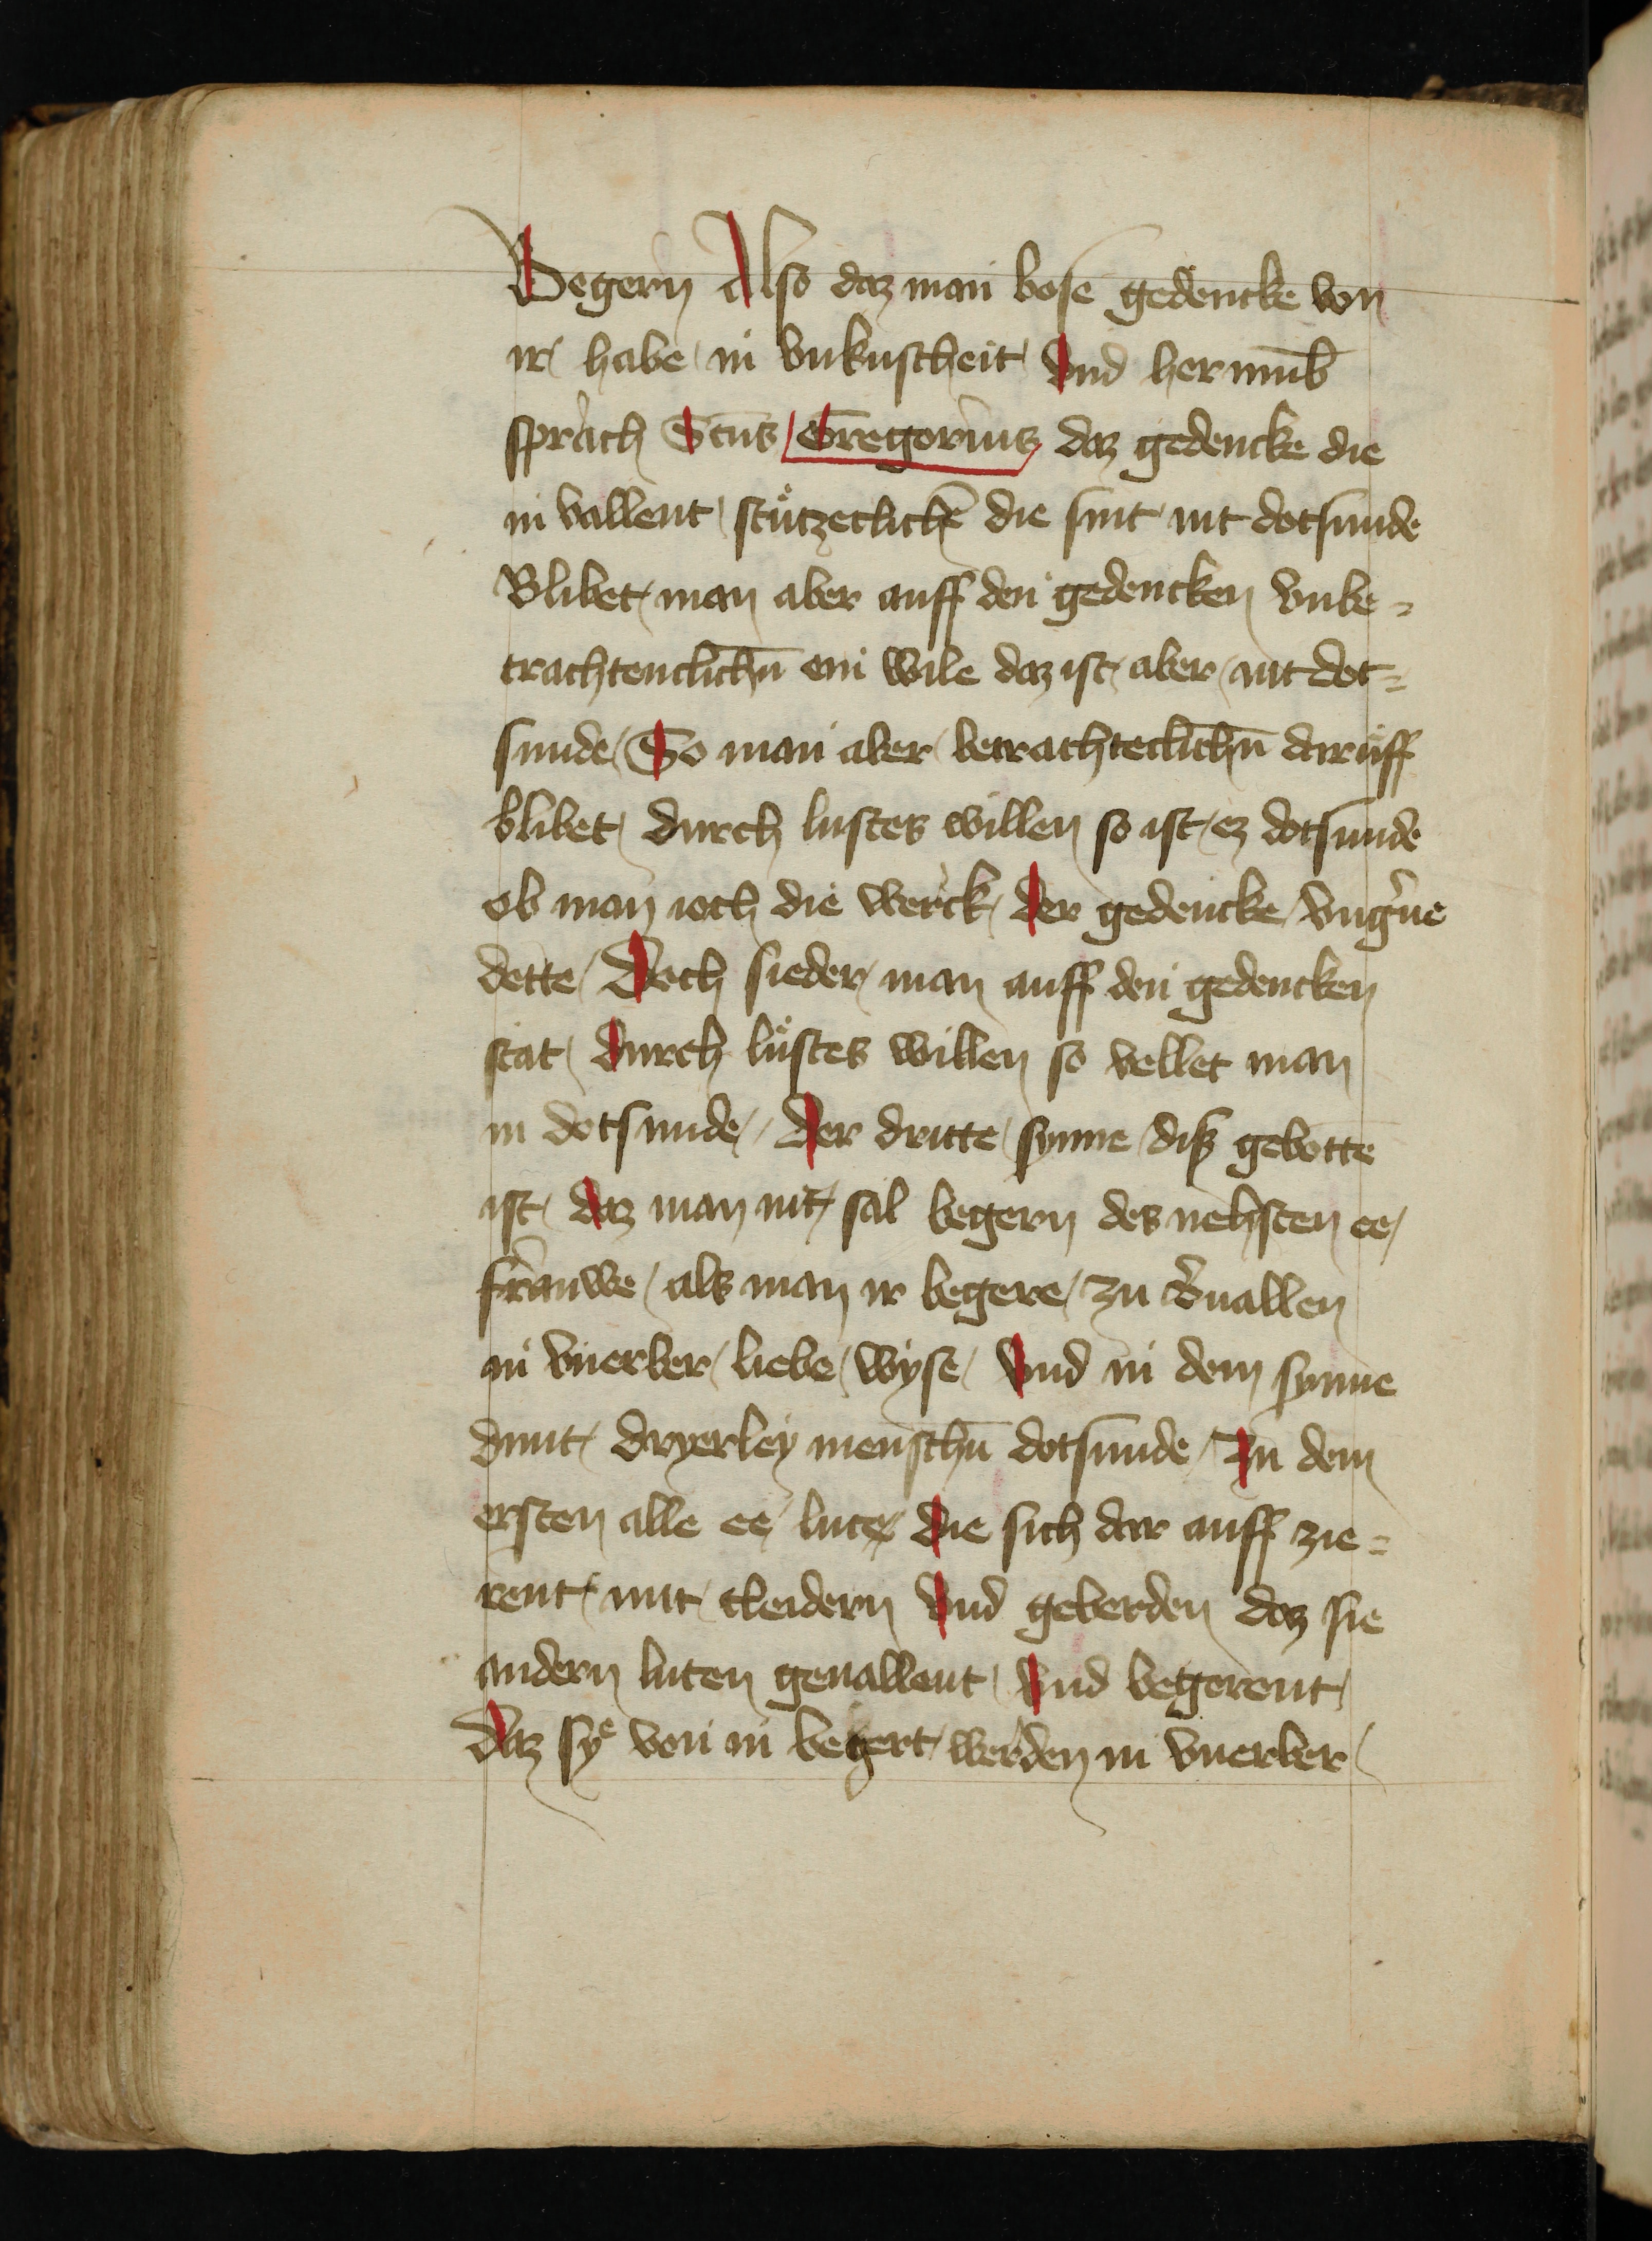 Begern Also daz man bose gedencke von
ir habe in vnkuscheit Vnd hervmb̄
sprach Sctūs Gregorius daz gedencke die
in vallent stuͤtzeclichē die sint nit dotsunde
Blibet man aber auff den gedencken vnbe⸗
trachtenclichn̄ ein wile daz ist aber nit dot⸗
sunde So man aber betrachteclichn̄ daruff
blibet durch lustes willen so ist ez dotsunde
ob man ioch die werck der gedencke vngˀne
dette Doch sieder man auff den gedencken
stat durch luͤstes willen so vellet man
in dotsunde Der dritte synne diß gebotte
ist daz man nit sal begern des nehsten ee
frauwe als man ir begere zu vˀuallen
in vnerber liebe wyse Vnd in dem synne
dunt dryerley menschn̄ dotsunde In dem
ersten alle ee lute die sich dar auff zie⸗
rent mit cleidern Vnd geberden daz sie
andern luten geuallent Vnd begerent
daz syͤ von in begert werden in vnerber